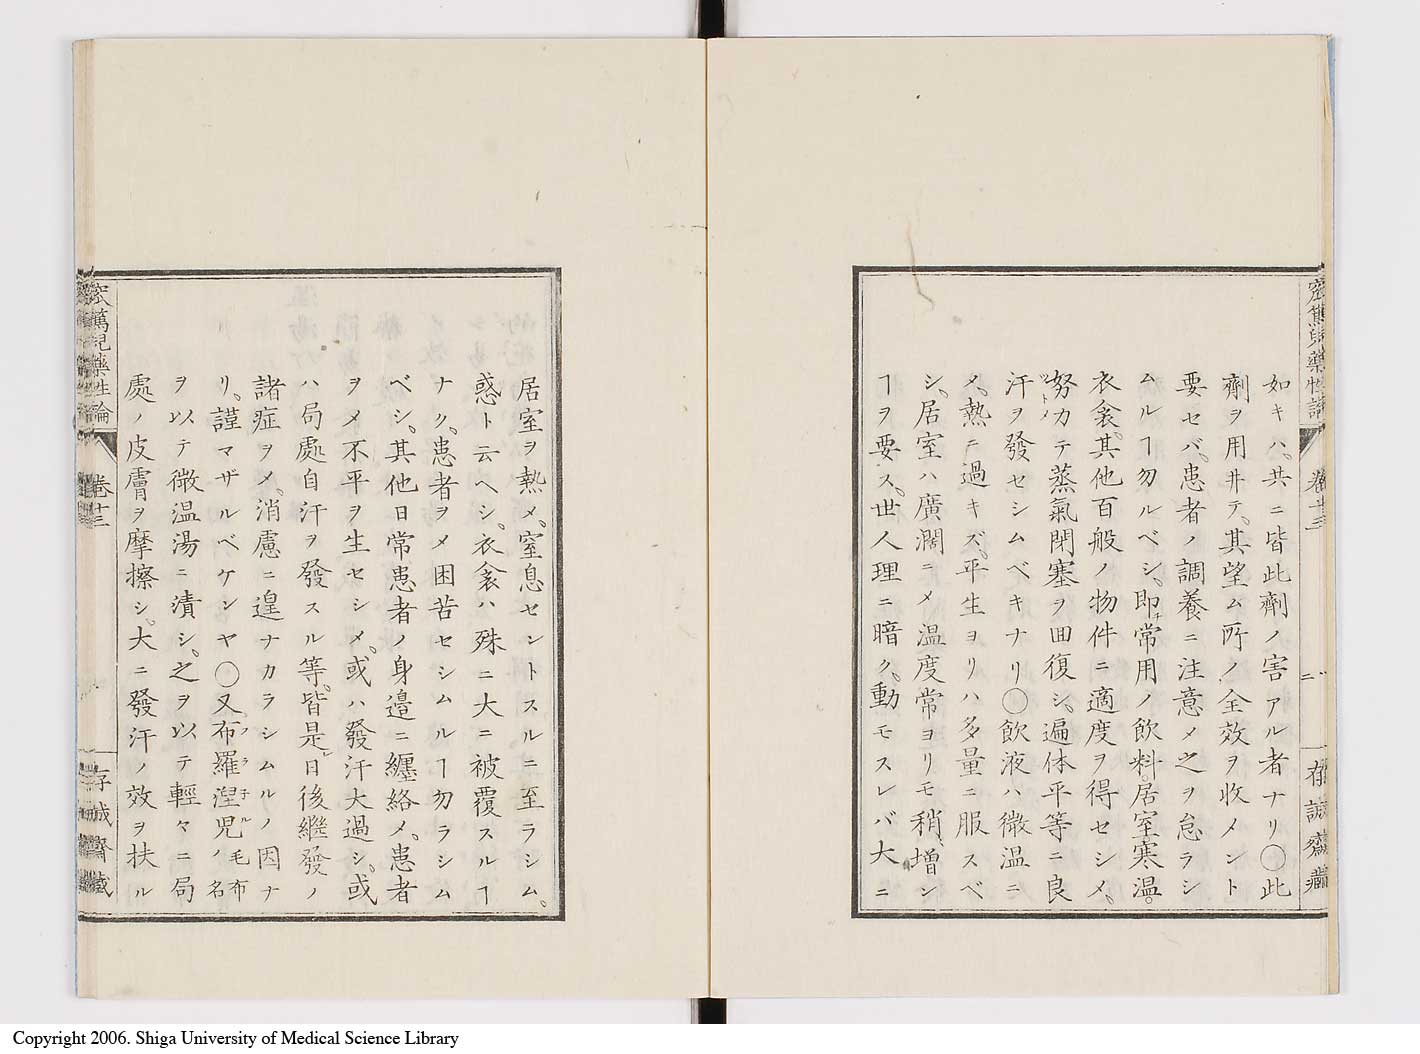 如キハ、共ニ皆此劑ノ害アル者ナリ〇此
劑ヲ用井テ、其望ム所ノ全效ヲ收メント
要セバ、患者ノ調養ニ注意メ之ヲ怠ラシ
ムルヿ勿ルベシ、即チ常用ノ飲料、居室寒温、
衣衾、其他百般ノ物件ニ適度ヲ得セシメ、
努カテ蒸氣閉塞ヲ回復シ、遍体平等ニ良
汗ヲ發セシムベキナリ〇飲液ハ微温ニ
メ、熱ニ過キズ、平生ヨリハ多量ニ服スベ
シ、居室ハ廣濶ニメ温度常ヨリモ稍增シ
ヿヲ要ス、世人理ニ暗ク、動モスレバ大ニ
居室ヲ熱メ、窒息セントスルニ至ラシム、
惑ト云ヘシ、衣衾ハ殊ニ大ニ被覆スルヿ
ナク、患者ヲメ困苦セシムルヿ勿ラシム
ベシ、其他日常患者ノ身邉ニ纏絡メ、患者
ヲメ不平ヲ生セシメ、或ハ發汗大過シ、或
ハ局處自汗ヲ發スル等、皆是レ日後繼發ノ
諸症ヲメ、消慮ニ遑ナカラシムルノ因ナ
リ、謹マザルベケンヤ〇又、布羅涅児フラ子ル毛布ノ名
ヲ以テ微温湯ニ漬シ、之ヲ以テ輕々ニ局
處ノ皮膚ヲ摩擦シ、大ニ發汗ノ效ヲ扶ル
窊篤兒藥性論 卷十三 二 存誠齋藏
窊篤兒藥性論 卷十三 存誠齋藏
Copyright 2006. Shiga University of Medical Science Library